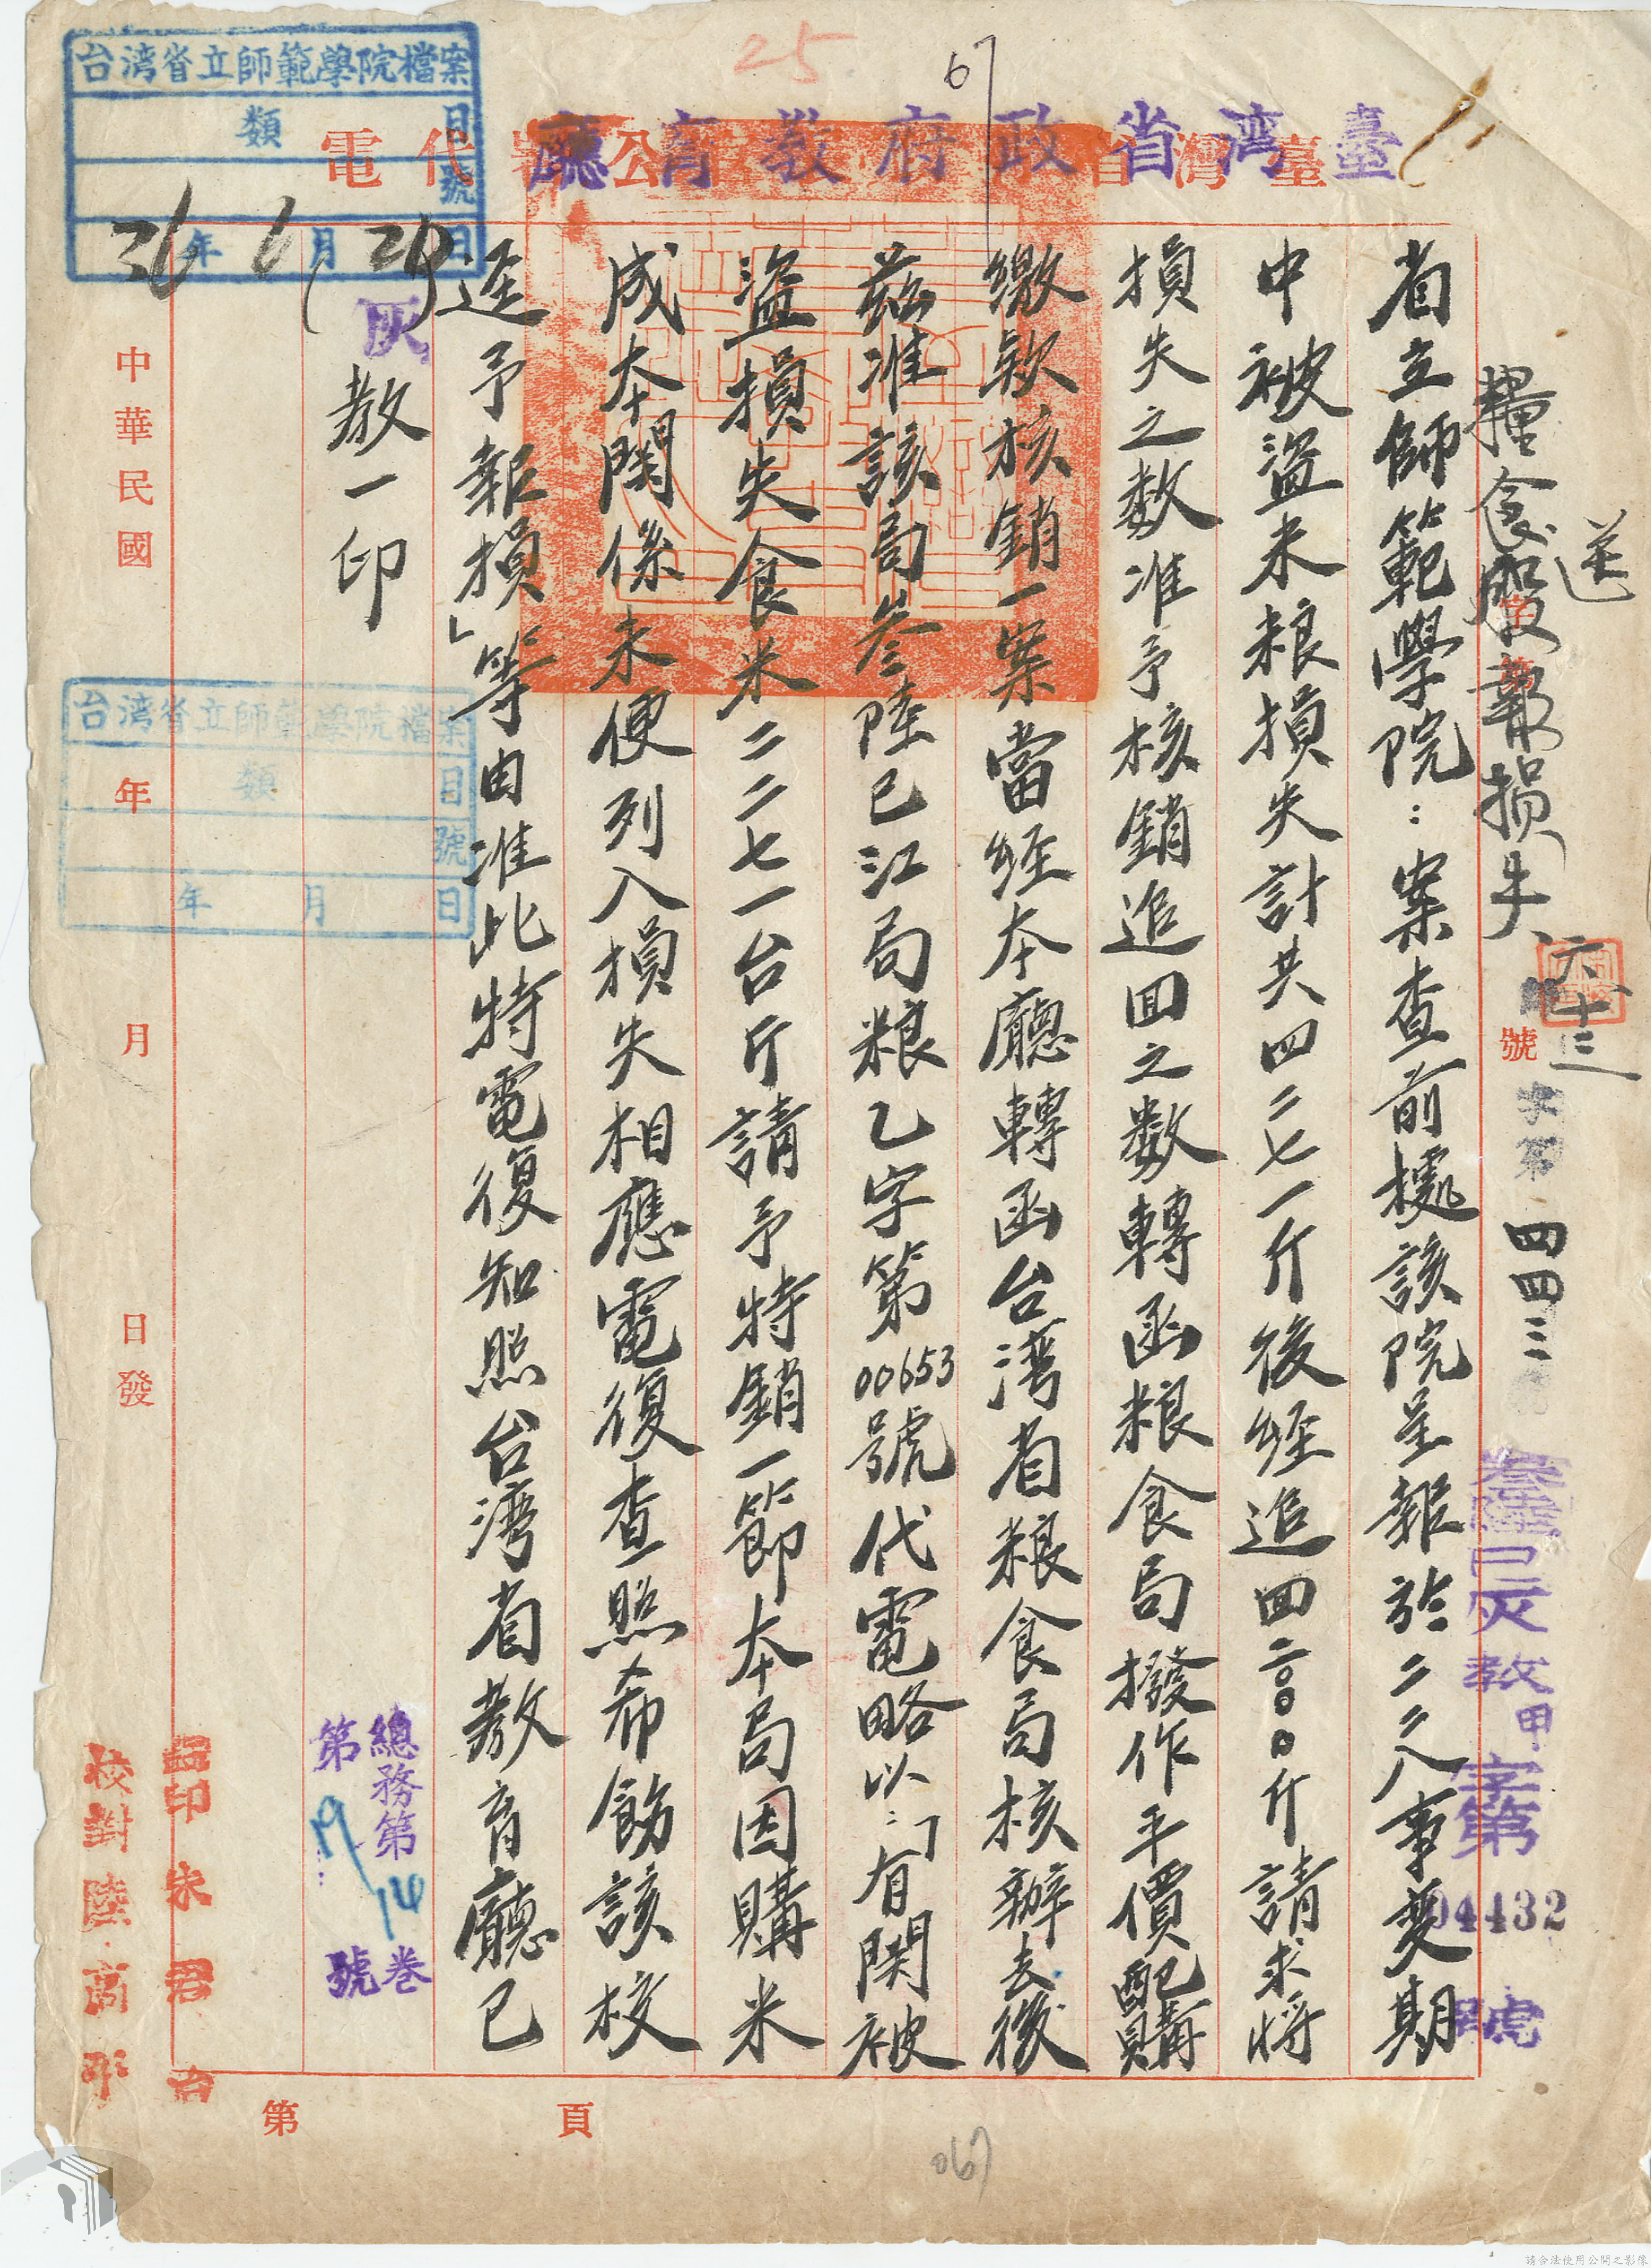 25
67
臺灣省政府教育廳
代電
糧食股報損失
送
六十三
號
字第
四四三
叁陸已灰教甲字第04432號
省立師範學院：案查前據該院呈報於二二八事變期
中被盜米粮損失計共四二七一斤後經追回二〇〇〇斤請求將
損失之数准予核銷追回之数轉函粮食局撥作平價配購
繳欵核銷一案當經本廳轉函台湾省粮食局核辦去後
茲准該局叁陸已江局粮乙字第00653號代電略以：「有関被
盜損失食米二二七一台斤請予特銷一節本局因購米
成本関係未便列入損失相應電復查照希飭該校
逕予報損」等由准此特電復知照台湾省教育廳已
灰教一印
台湾省立師範學院檔案
類
目
號
36年6月24日
台湾省立師範學院檔案
類
目
號
年 月 日
中華民國 年 月 日發
總務第 卷
第 19/14 號
監印 朱君
校對 陸高
第 頁
067
請合法使用公開之影像